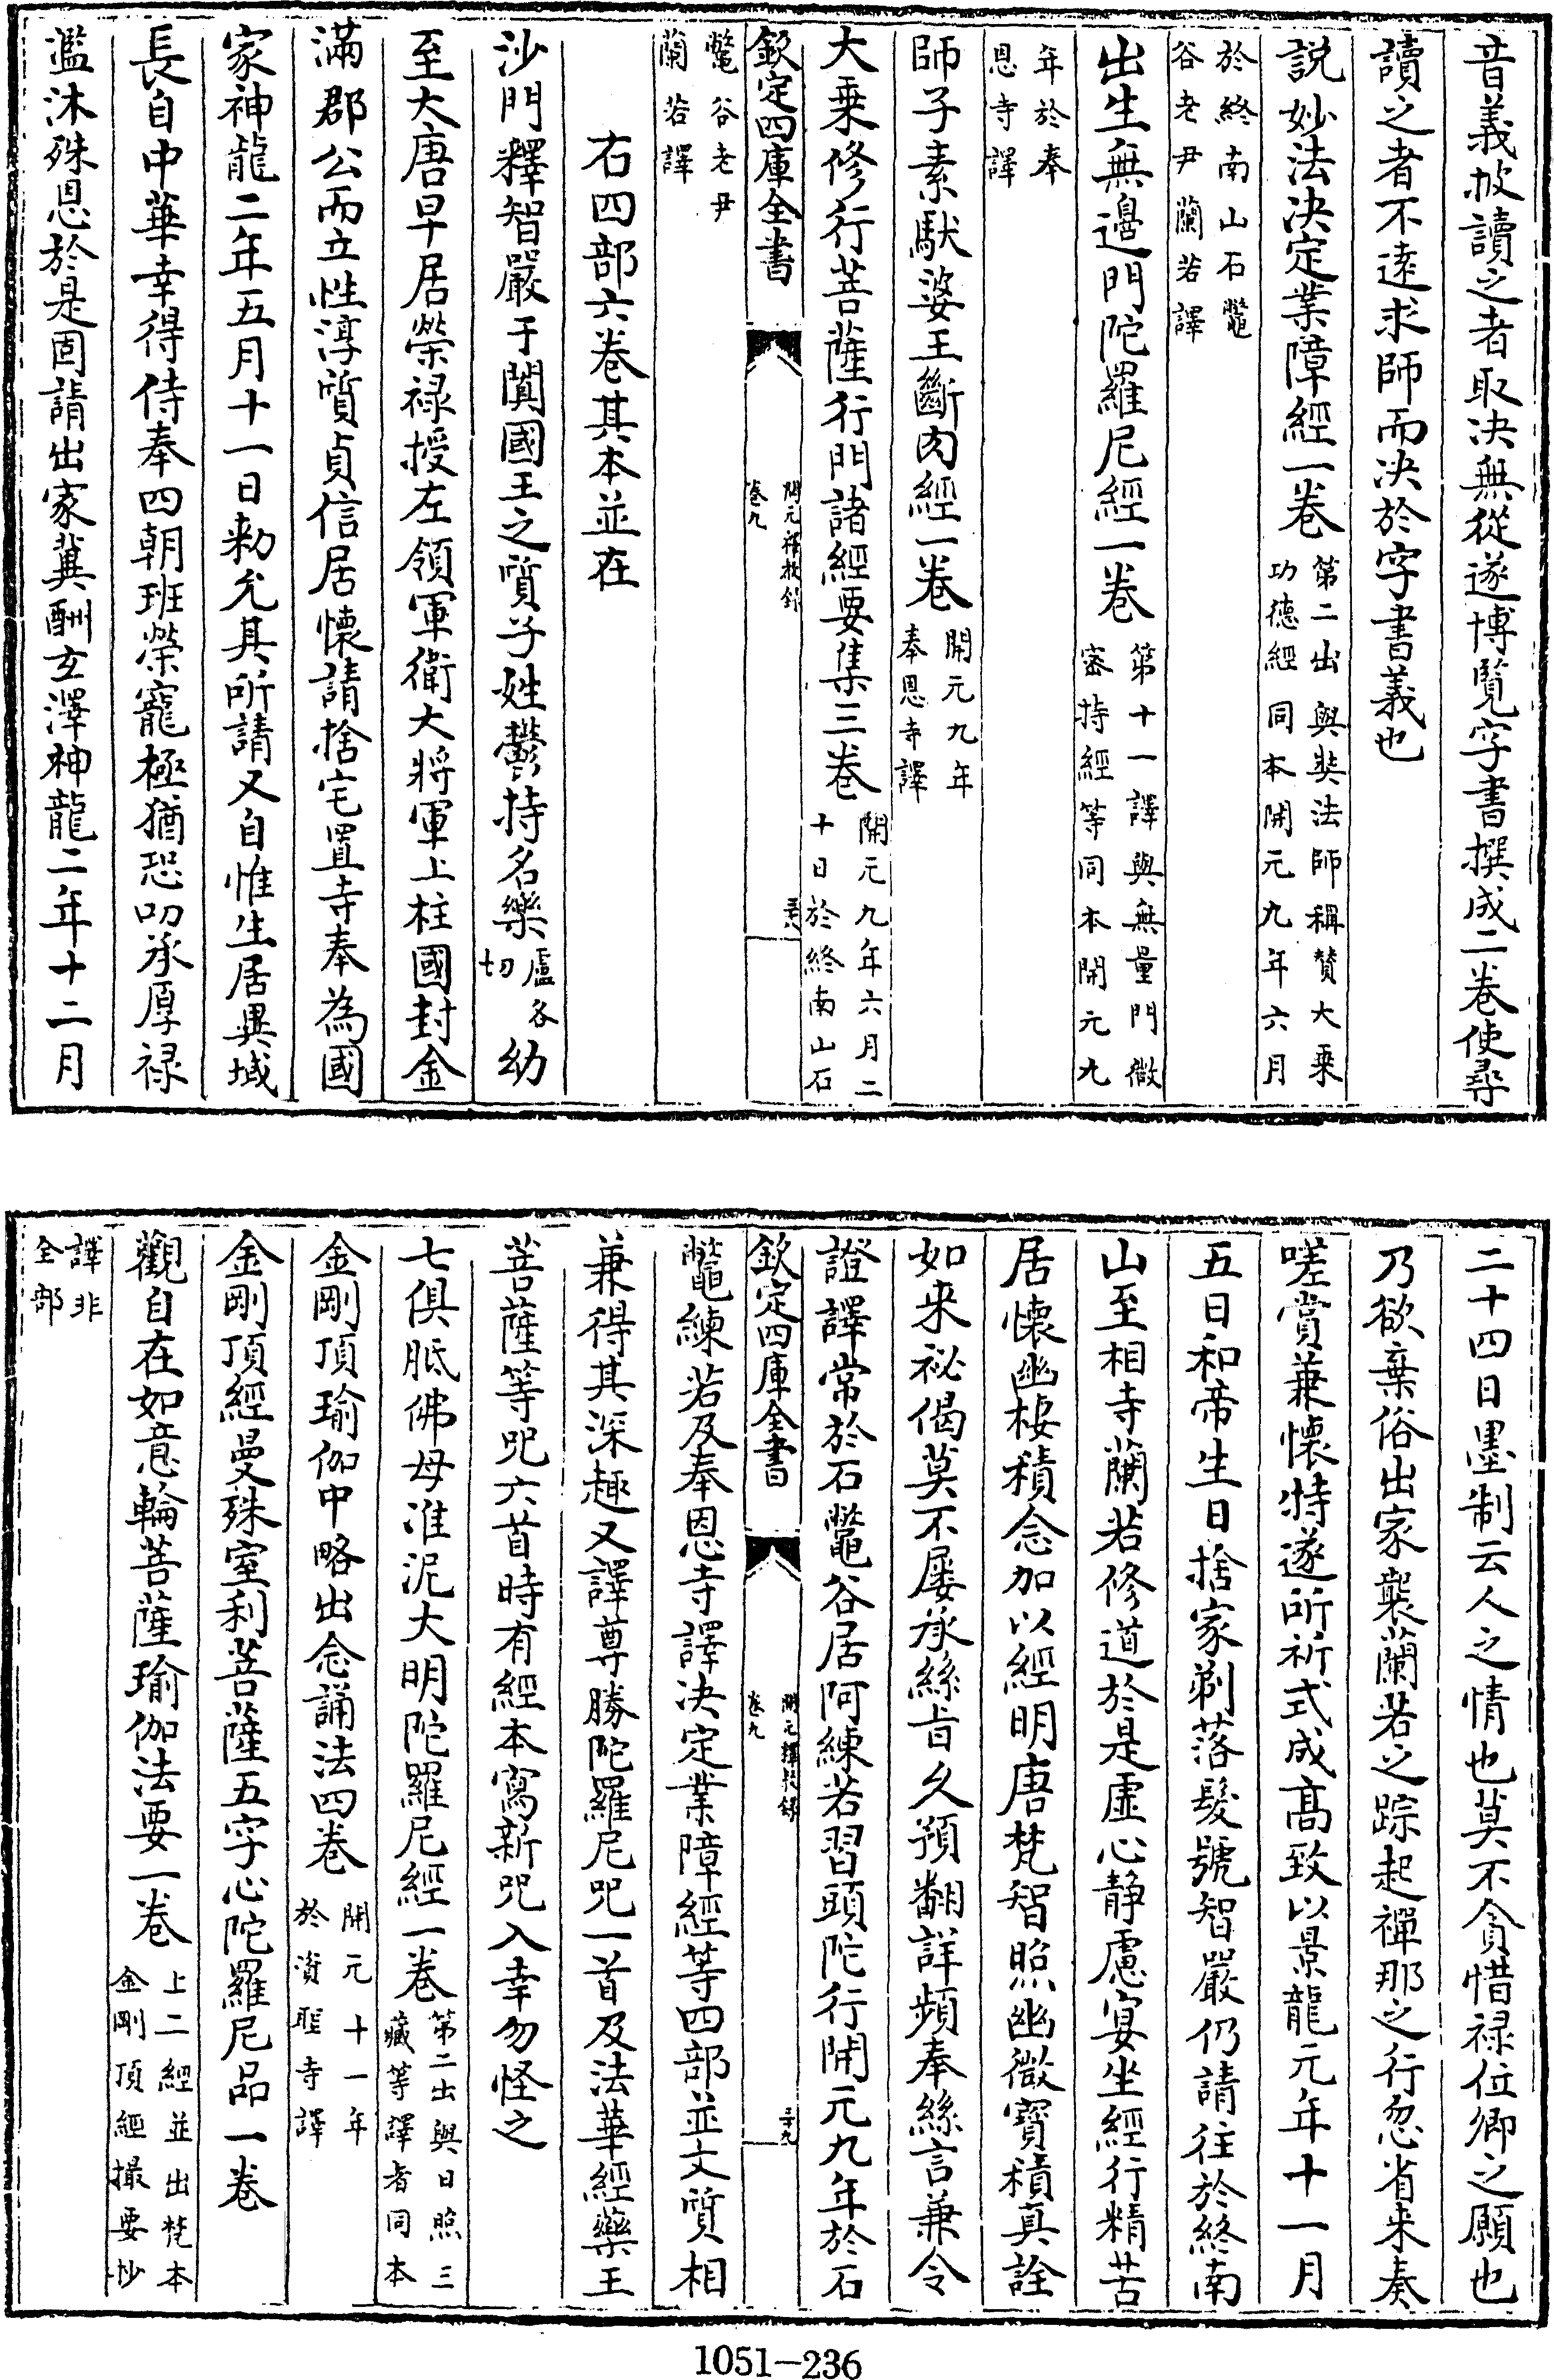 昔義披讀之者取决無從遂博覧字書撰成二巻使尋
讀之者不遠求師而决於字書義也
説妙法决定業障經一巻第二出與奘法師稱賛大乗功德經同本開元九年六月
於終南山石鼈谷老尹蘭若譯
出生無邊門陀羅尼經一巻第十一譯與無量門微宻持經等同本開元九
年於奉恩寺譯
師子素馱娑王斷肉經一巻開元九年奉恩寺譯
大乗修行菩薩行門諸經要集三巻開元九年六月二十日於終南山石
欽定四庫全書
開元釋教録
卷九
鼈谷老尹蘭若譯
右四部六巻其本並在
沙門釋智嚴于闐國王之質子姓鬱持名樂盧各切幼
至大唐早居榮禄授左領軍衛大將軍上柱國封金
滿郡公而立性淳質貞信居懐請捨宅置寺奉為國
家神龍二年五月十一日勑允其所請又自惟生居異域
長自中華幸得侍奉四朝班榮寵極猶恐叨承厚禄
濫沐殊恩於是固請出家冀酬玄澤神龍二年十二月
二十四日墨制云人之情也莫不貪惜禄位卿之願也
乃欲棄俗出家襲蘭若之踪起禪那之行忽省来奏
嗟賞兼懐特遂所祈式成髙致以景龍元年十一月
五日和帝生日捨家剃落髮號智嚴仍請往於終南
山至相寺蘭若修道於是虚心静慮宴坐經行精苦
居懐幽棲積念加以經明唐梵智照幽微寳積真詮
如来祕偈莫不屢承絲㫖久預翻詳頻奉絲言兼令
證譯常於石鼈谷居阿練若習頭陀行開元九年於石
欽定四庫全書
開元釋教録
卷九
三十九
鼈練若及奉恩寺譯决定業障經等四部並文質相
兼得其深趣又譯尊勝陀羅尼呪一首及法華經藥王
菩薩等呪六首時有經本寫新呪入幸勿怪之
七俱胝佛母准泥大明陀羅尼經一巻第二出與日照三藏等譯者同本
金剛頂瑜伽中略出念誦法四巻開元十一年於資聖寺譯
金剛頂經曼殊室利菩薩五字心陀羅尼品一巻
觀自在如意輪菩薩瑜伽法要一巻上二經並出梵本金剛頂經撮要抄
譯非全部
1051-236